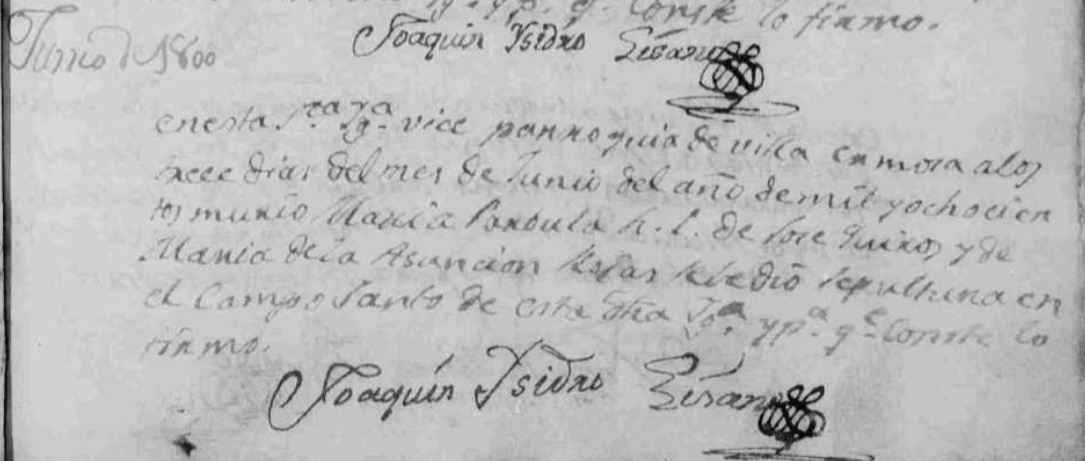 y p.ª q.e Conste lo firmo.
Joaquin Ysidro Lisano
Junio d 1800
en esta S.ta Yg.ª vice parroquia de villa ermosa a los
trece dias del mes de Junio del año de mil y ochocien
tos murio Maria Parbula h. l. de Jose Quiros y de
Maria de la Asuncion Rojas se le dió sepultura en
el Campo Santo de esta dha Yg.ª y p.ª q.e Conste lo
firmo.
Joaquin Ysidro Lisano